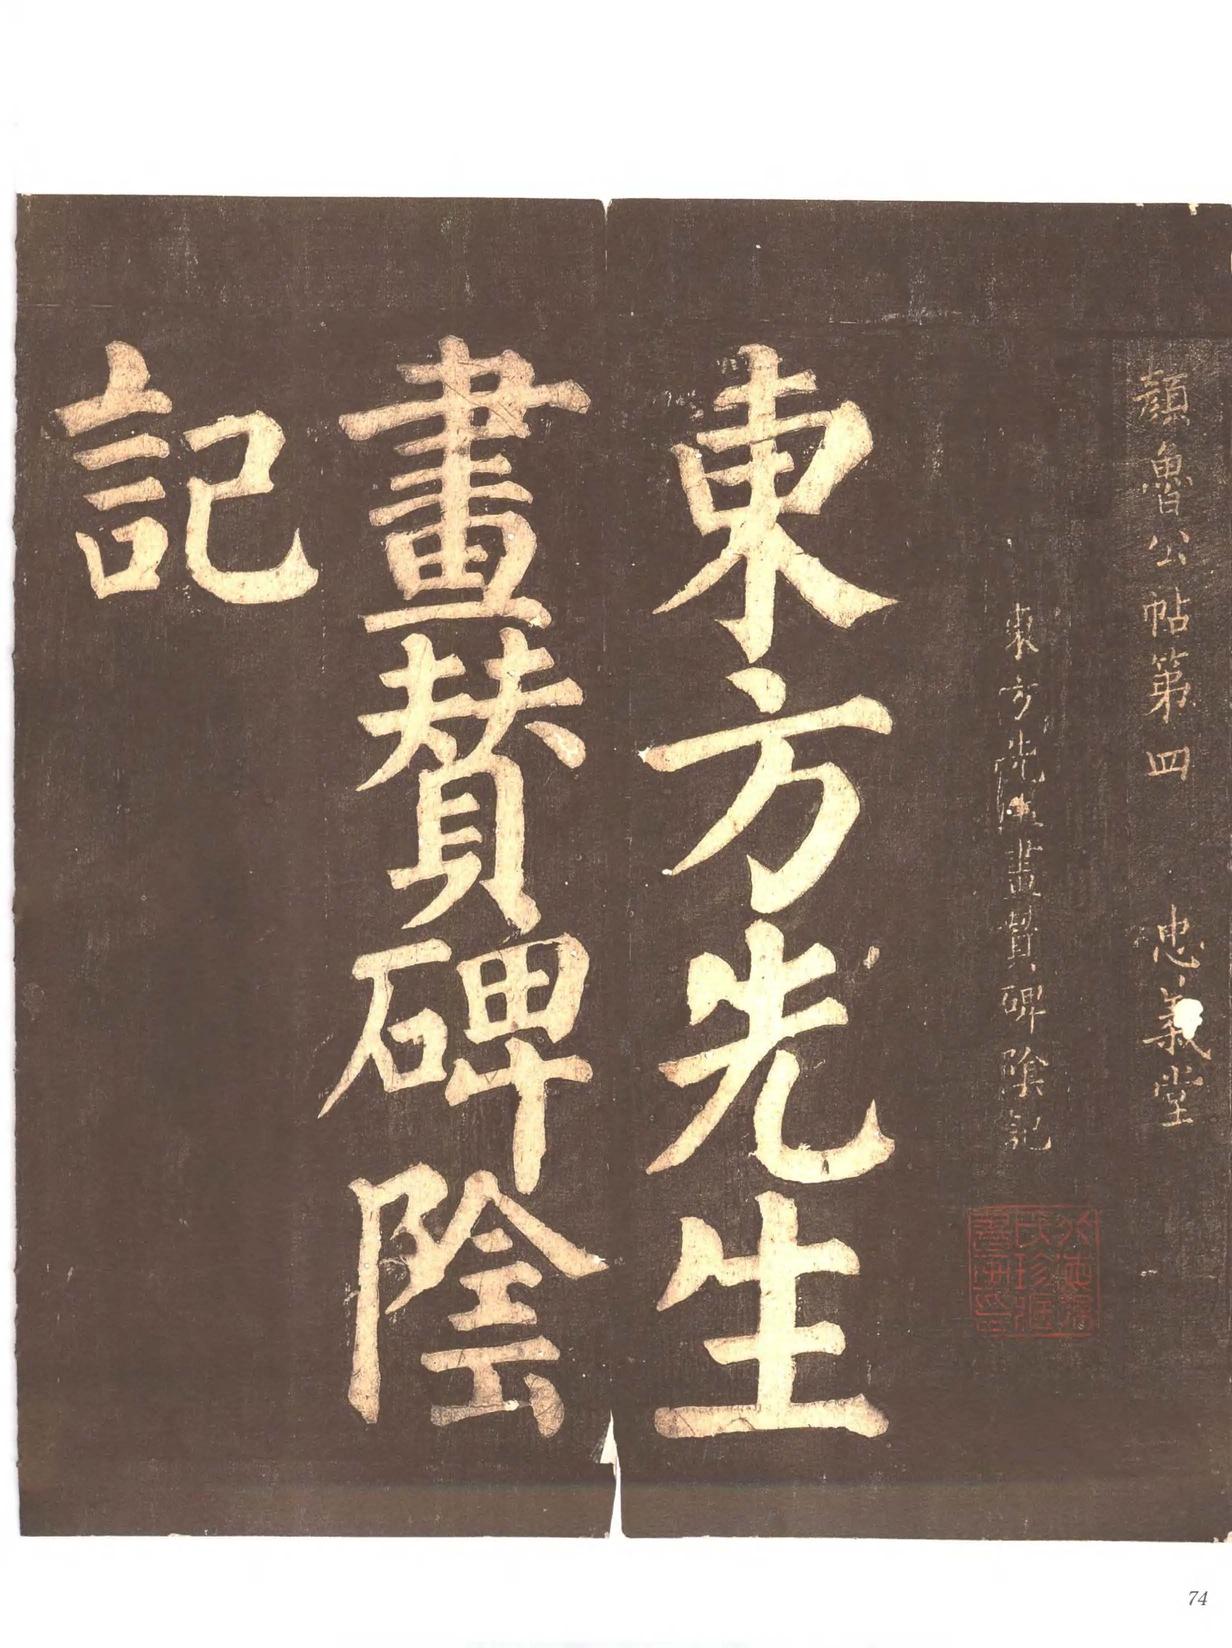 顔魯公帖第四　忠義堂
東方先生畫贊碑陰記
東方先生
畫贊碑陰
記
74